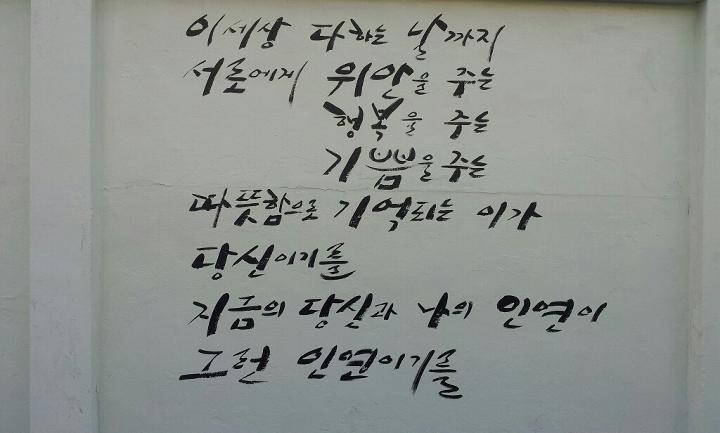 이세상 다하는 날까지
서로에게 위안을 주는
행복을 주는
기쁨을 주는
따뜻함으로 기억되는 이가
당신이기를
지금의 당신과 나의 인연이
그런 인연이기를